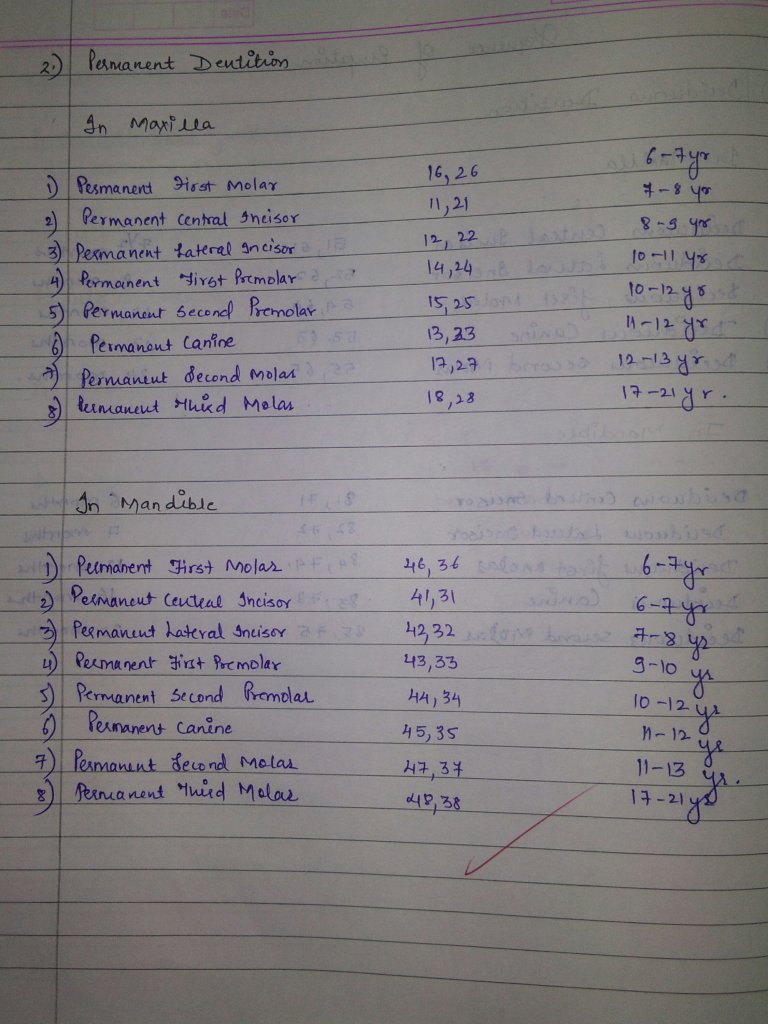 2.) Permanent Dentition
In Maxilla
1) Permanent First Molar 16, 26 6-7yr
2) Permanent Central Incisor 11,21 7-8 yr
3) Permanent Lateral Incisor 12, 22 8-9 yr
4) Permanent First Premolar 14,24 10-11 yr
5) Permanent Second Premolar 15,25 10-12yr
6) Permanent Canine 13,23 11-12 yr
7) Permanent Second Molar 17,27 12-13 yr.
8) Permanent Third Molar 18,28 17-21yr.
In Mandible
1) Permanent First Molar 46,36 6-7yr
2) Permanent Central Incisor 41,31 6-7yr
3) Permanent Lateral Incisor 42,32 7-8 yr
4) Permanent First Premolar 43,33 9-10 yr
5) Permanent Second Premolar 44,34 10-12 yr
6) Permanent Canine 45,35 11-12 yr
7) Permanent Second Molar 47,37 11-13 yr.
8) Permanent Third Molar 48,38 17-21yr